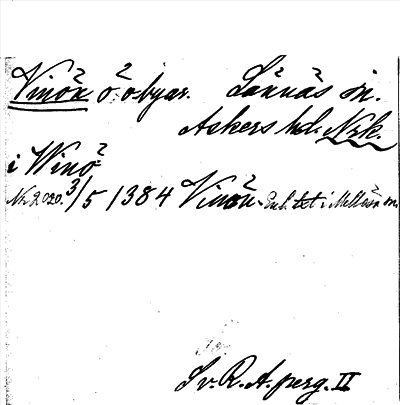 Vinön ö o. byar. Lännäs sn.
Askers hd. Nrk.
i Winö
Nr 2020. 3/5 1384 Vinön. Enl. tet i Mellösa sn.
Sv. R. A. perg. II